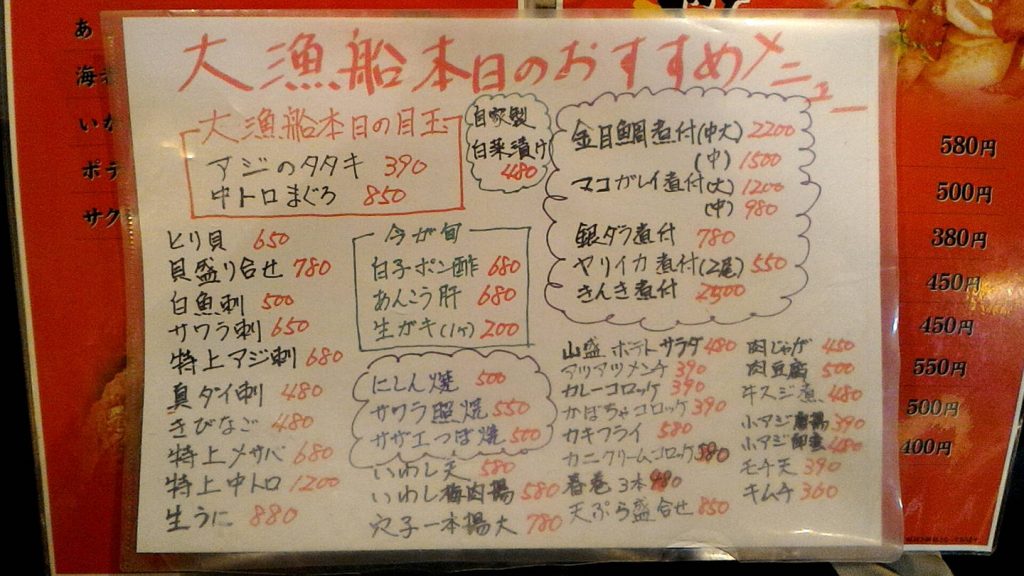 大漁船本日のおすすめメニュー
大漁船本日の目玉
アジのタタキ 390
中トロまぐろ 850
自家製
白菜漬け
480
金目鯛煮付(中大) 2200
(中) 1500
マコガレイ煮付(大) 1200
(中) 980
銀ダラ煮付 780
ヤリイカ煮付(2尾) 550
きんき煮付 2500
とり貝 650
貝盛り合せ 780
白魚刺 500
サワラ刺 650
特上アジ刺 680
真ダイ刺 480
きびなご 480
特上メサバ 680
特上中トロ 1200
生うに 880
今が旬
白子ポン酢 680
あんこう肝 680
生ガキ(1ヶ) 200
にしん焼 500
サワラ照焼 550
サザエつぼ焼 500
いわし天 580
いわし梅肉揚 580
穴子一本揚大 780
山盛ポテトサラダ 480
アツアツメンチ 390
カレーコロッケ 390
かぼちゃコロッケ 390
カキフライ 580
カニクリームコロッケ 580
春巻3本
天ぷら盛合せ 850
肉じゃが 450
肉豆腐 500
牛スジ煮 480
小アジ 390
小アジ 480
モチ天 390
キムチ 360
あ
海
いか
ポテ
サク
580円
500円
380円
450円
450円
550円
500円
400円